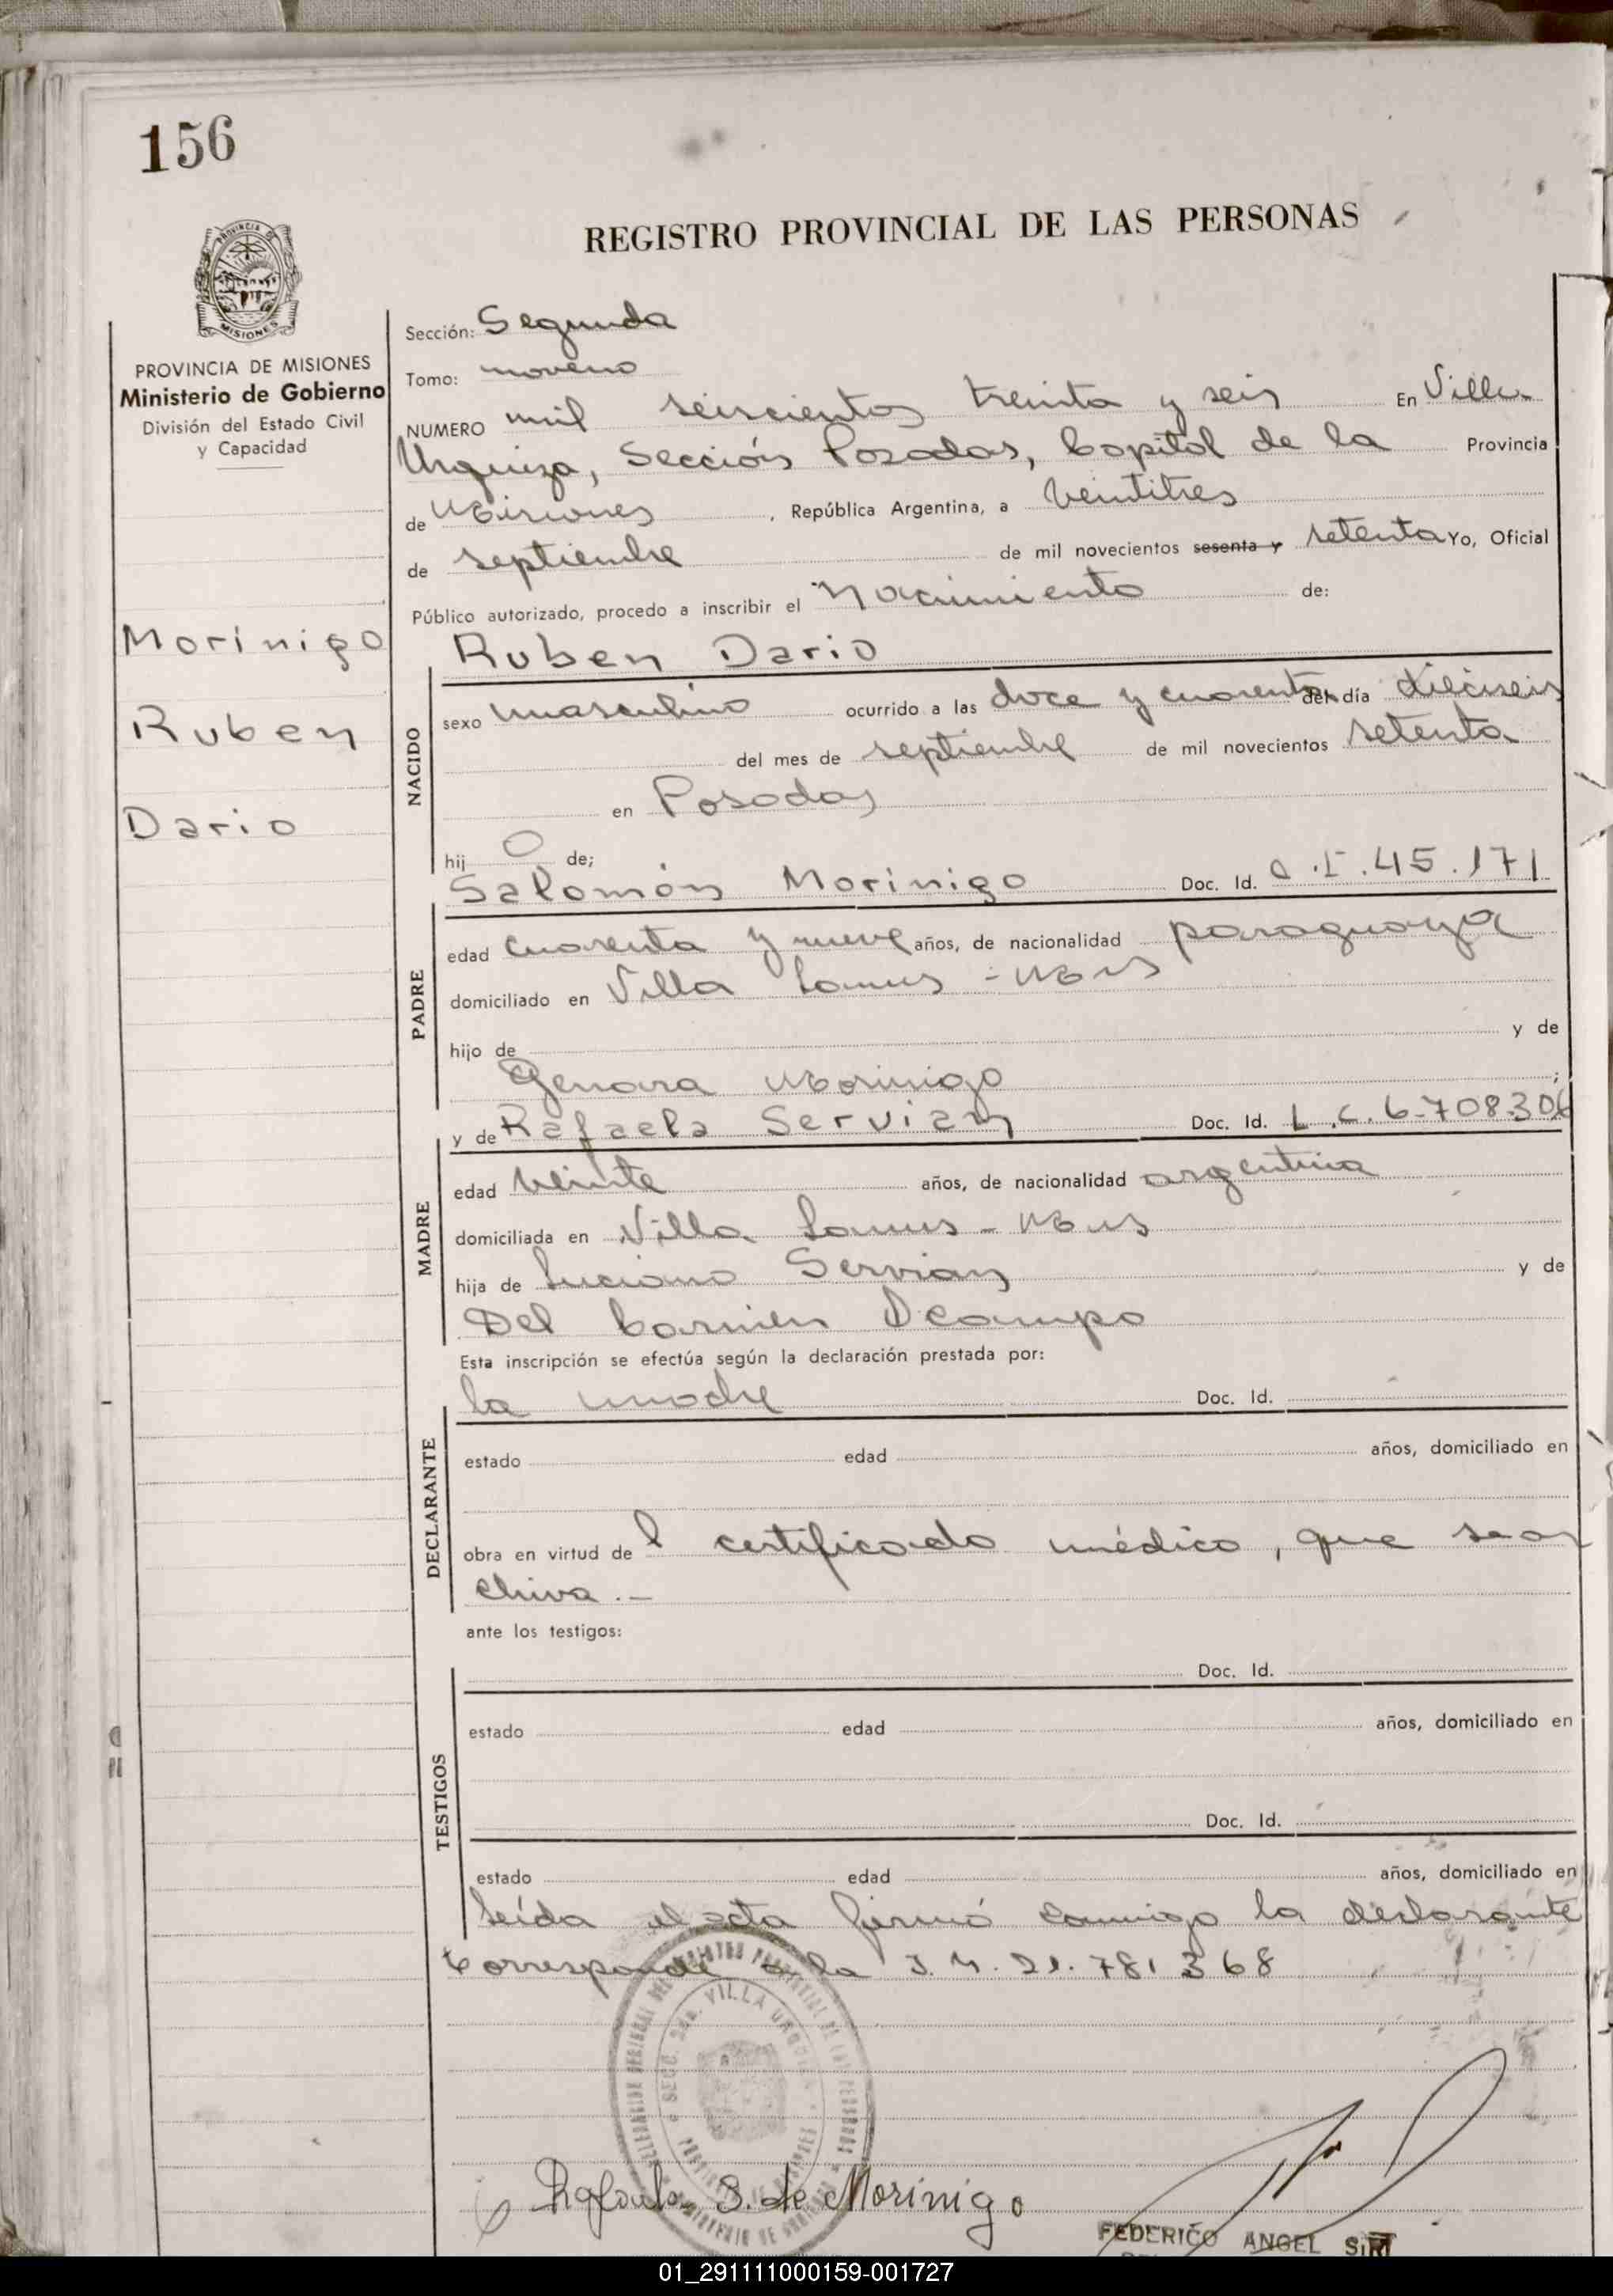 156
REGISTRO PROVINCIAL DE LAS PERSONAS
PROVINCIA DE MISIONES
Ministerio de Gobierno
División del Estado Civil
y Capacidad
Morínigo
Ruben
Dario
Sección: Segunda
Tomo: noveno
NUMERO mil seiscientos treinta y seis En Villa
Urquiza, Sección Posadas, Capital de la Provincia
de Misiones, República Argentina, a veintitres
de septiembre de mil novecientos sesenta y setenta Yo, Oficial
Público autorizado, procedo a inscribir el Nacimiento de:
Ruben Dario
NACIDO
sexo masculino ocurrido a las doce y cuarenta del día dieciseis
del mes de septiembre de mil novecientos setenta
en Posadas
hij o de;
Salomón Morínigo Doc. Id. C.I. 45.171
PADRE
edad cuarenta y nueve años, de nacionalidad paraguaya
domiciliado en Villa Lanus - Mnes
hijo de y de
Genara Morinigo ;
y de Rafaela Servian Doc. Id. L.C. 6.708.306
MADRE
edad veinte años, de nacionalidad argentina
domiciliada en Villa Lanus - Mnes
hija de Luciano Servian y de
Del Carmen Ocampo
Esta inscripción se efectúa según la declaración prestada por:
la madre Doc. Id.
DECLARANTE
estado edad años, domiciliado en
obra en virtud de l certificado médico, que se ar
chiva.-
ante los testigos:
Doc. Id.
TESTIGOS
estado edad años, domiciliado en
Doc. Id.
estado edad años, domiciliado en
Leída el acta firmó conmigo la declarante
Corresponde a la 21.781.368
SECC. 2da. VILLA URQUIZA
Rafaela S. de Morinigo
FEDERICO ANGEL
01_291111000159-001727